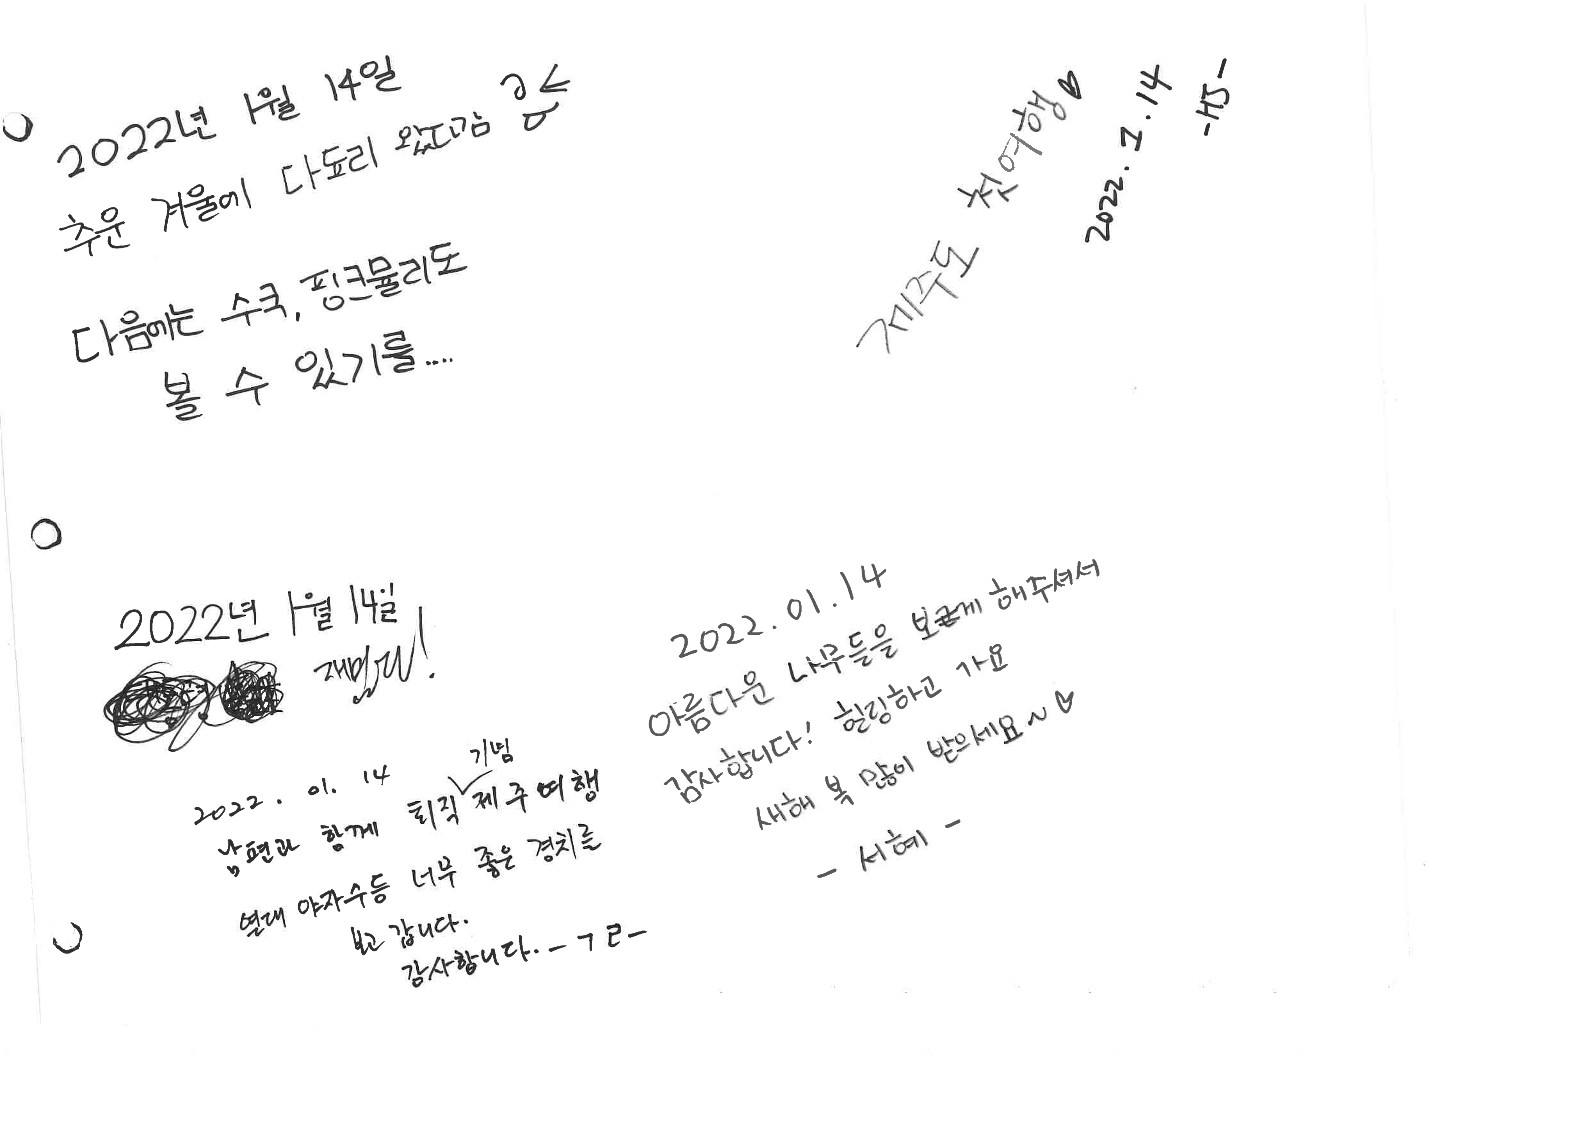 2022년 1월 14일
추운 겨울에 다뇨리 왔다감
다음에는 수국, 핑크뮬리도
볼 수 있기를....
제주도 첫여행♡
2022. 1. 14
-HJ-
2022년 1월 14일
2022. 01. 14
남편과 함께 퇴직 기념 제주여행
열대 야자수등 너무 좋은 경치를
보고 갑니다.
감사합니다. - ㄱㄹ-
2022. 01. 14
아름다운 나무들을 보게 해주셔서
감사합니다! 힐링하고 가요
새해 복 많이 받으세요~♡
- 서혜 -